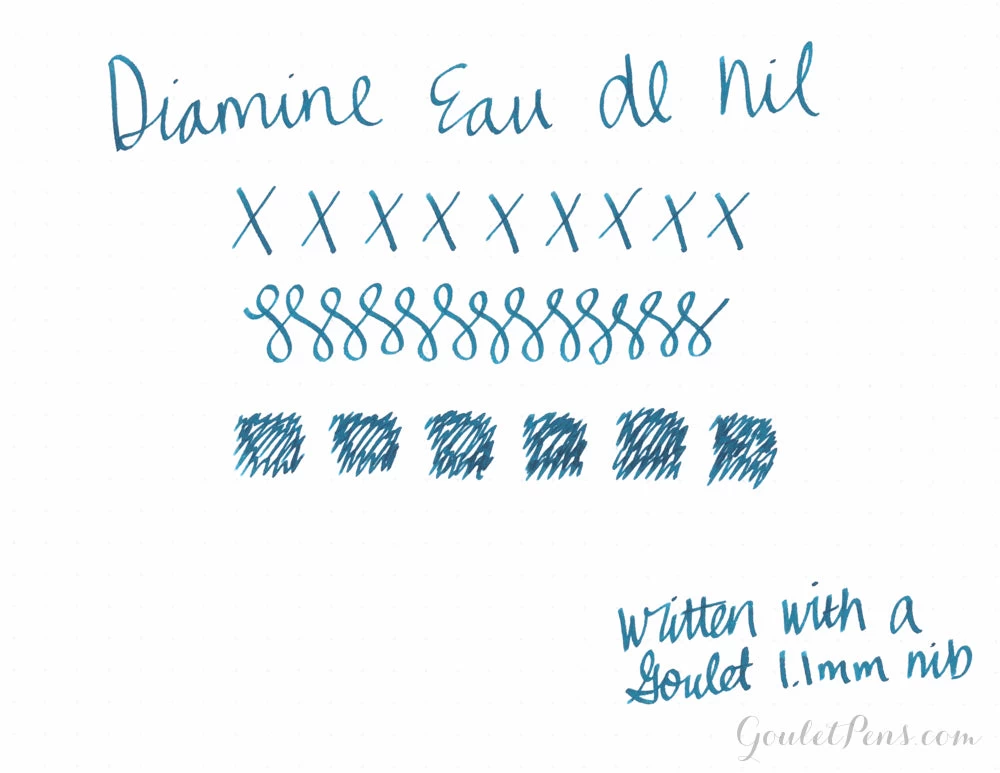 Diamine Eau de Nil
X X X X X X X X X
written with a
Goulet 1.1mm nib
GouletPens.com